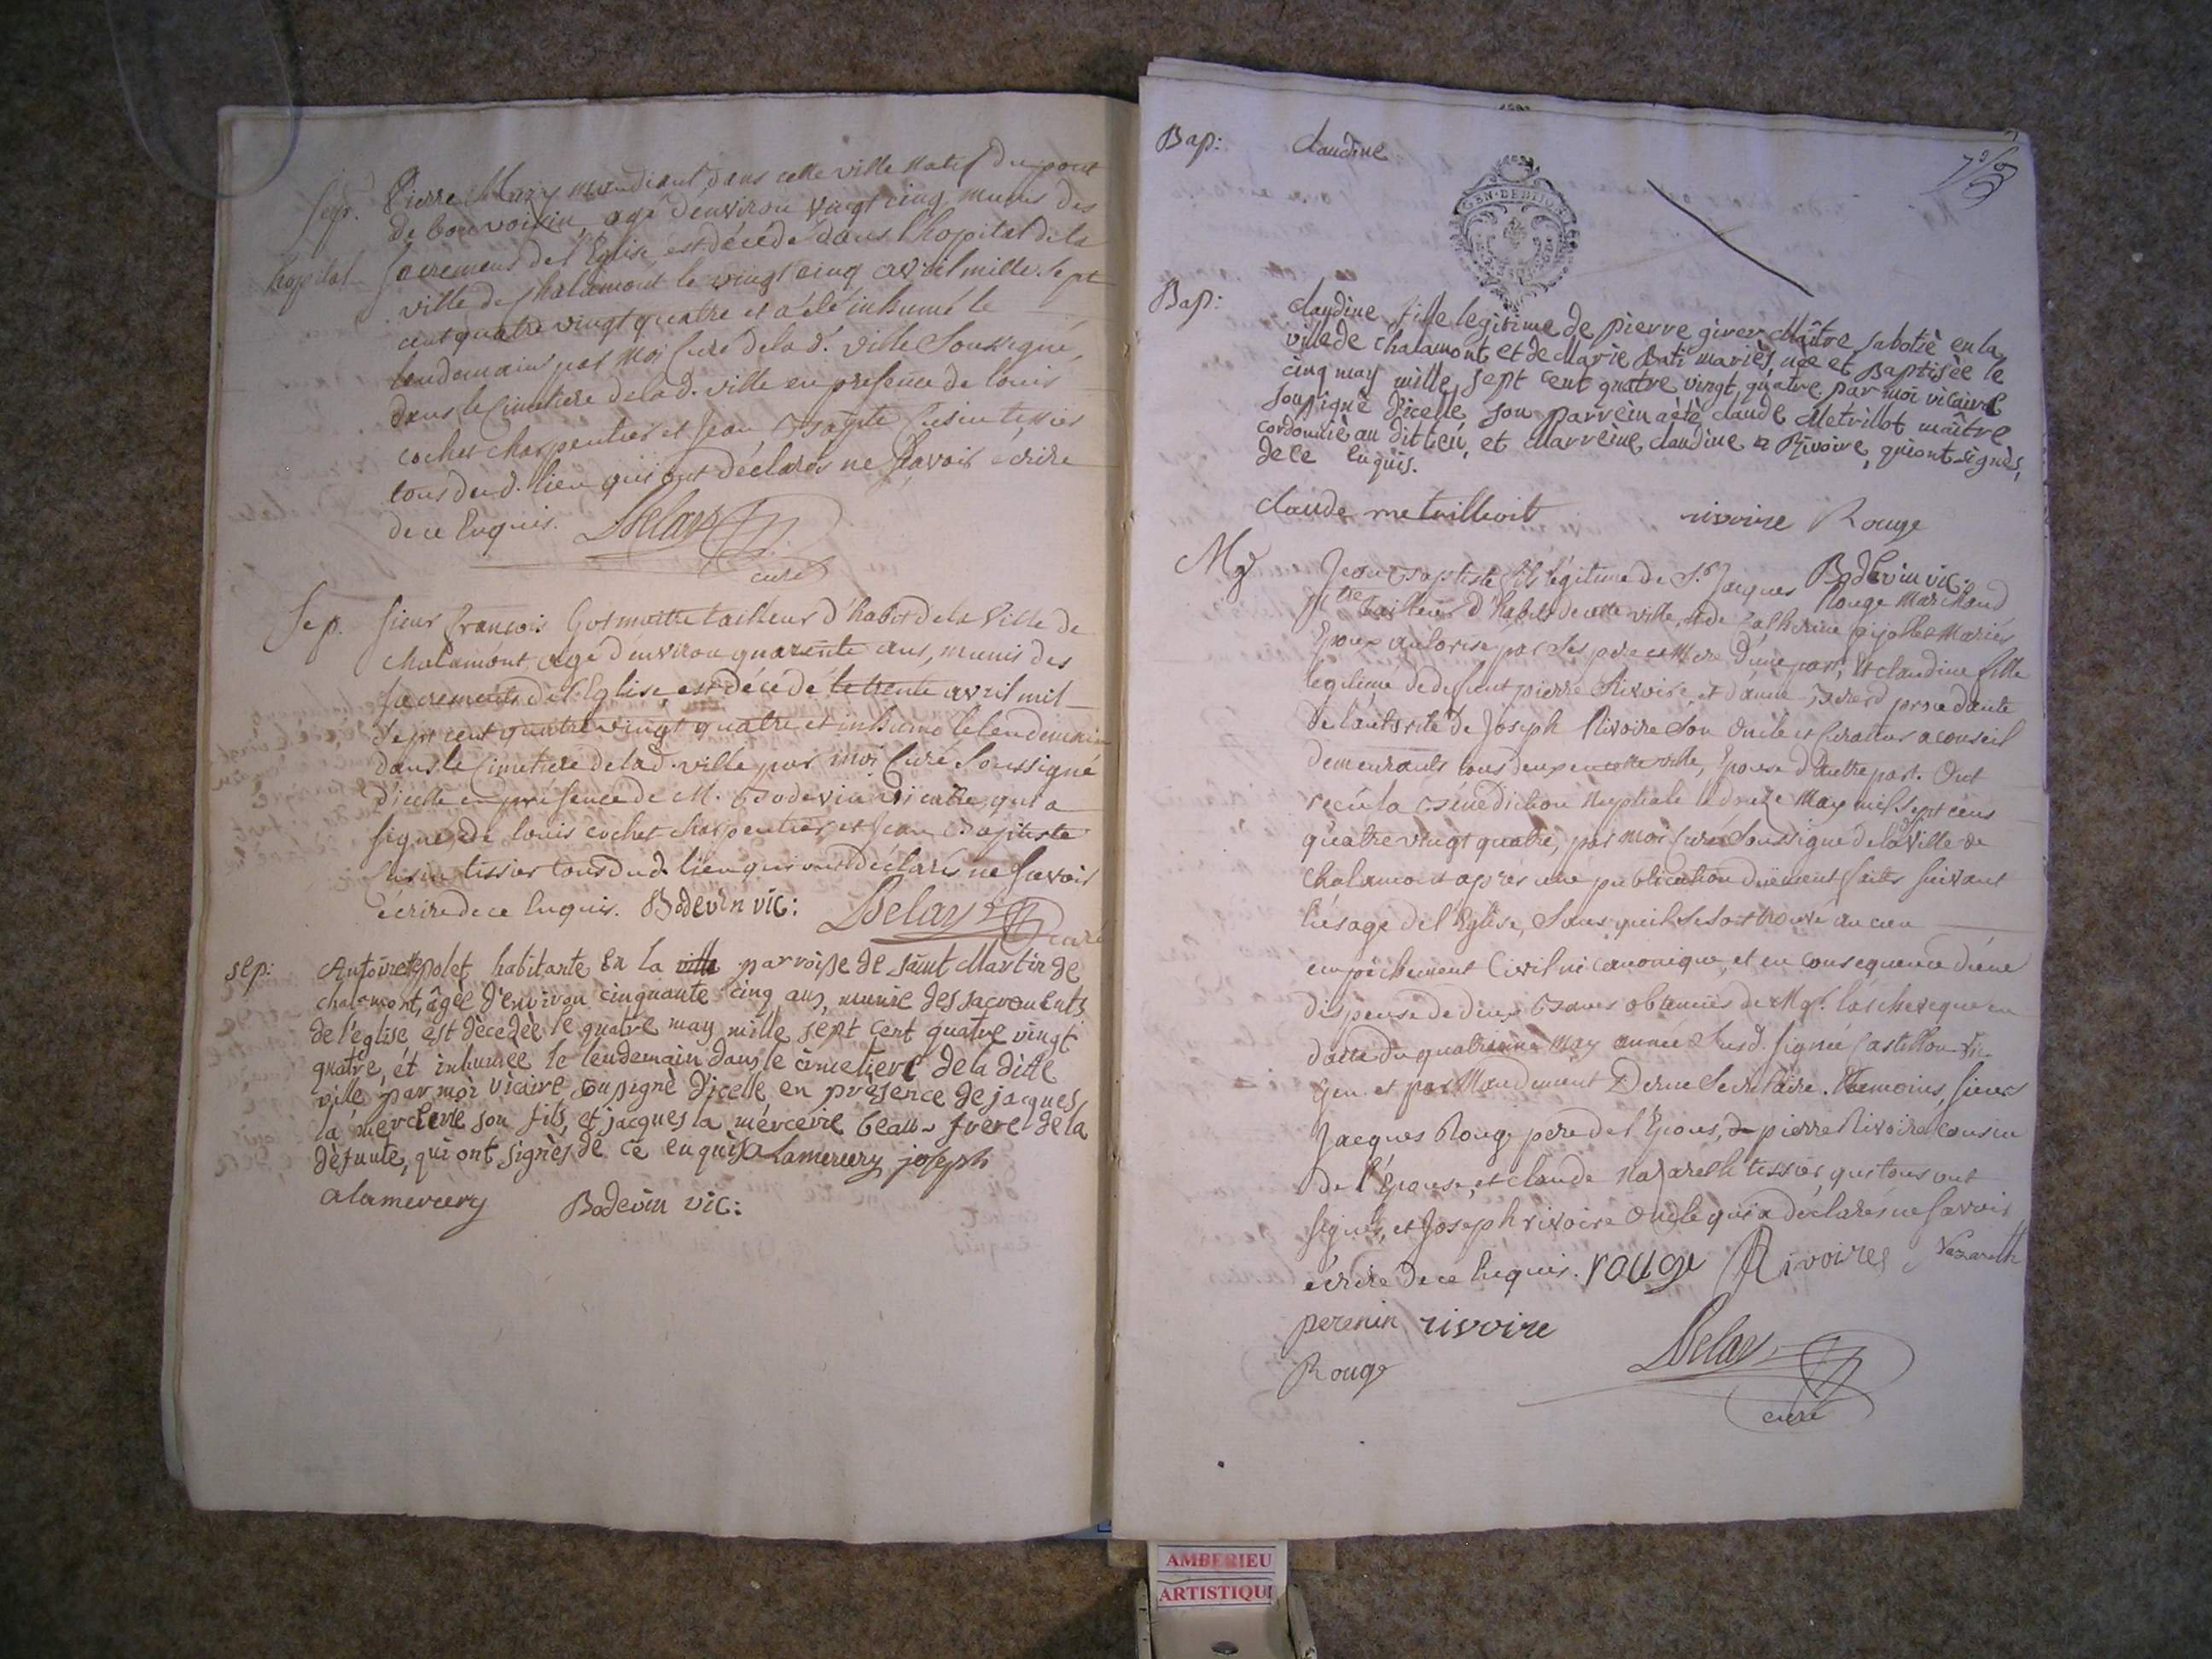 Sep.
Pierre mandiant dans cette ville natif du pont
de bonvoisin, agé d'environ vingt cinq, munis des
hopital
sacremens de l'Eglise est décédé dans l'hopital de la
ville de Chalamont le vingt cinq avril mille sept
cent quatre vingt quatre et a été inhumé le
lendemain par moi Curé de la d. ville Soussigné,
dans le Cimetiere de la d. ville en presence de louis
cochet charpentier et Jean Baptiste tissier
tous du d. lieu qui ont déclarés ne sçavoir écrire
de ce Enquis. Delary
curé
Sep.
sieur françois maitre tailleur d'habit de la Ville de
chalamont agé d'environ quarente ans, munis des
sacrements de l'Eglise, est décédé le trente avril mil
sept cent quatre vingt quatre et inhumé le lendemain
dans le Cimetiere de la d. ville par moi Curé Soussigné
d'icelle en presence de M. Bodevin vicaire qui a
signé, de louis cochet charpentier et Jean Baptiste
tissier tous du d. lieu qui ont déclarés ne sçavoir
écrire de ce Enquis. Bodevin vic: Delary
curé
sep:
Antoinette polet habitante en la ville parroisse de saint Martin de
chalamont, âgée d'environ cinquante cinq ans, munie des sacrements
de l'église est dècedèe le quatre may mille sept cent quatre vingt
quatre, ét inhumée le lendemain dans le cimetiere de la ditte
ville par moi vicaire soupigné d'icelle en presence de jacques
la mercerie son fils, et jacques la mércerie beau-frere de la
dèfunte, qui ont signès de ce enquis alamercery joseph
alamercery Bodevin vic:
Bap: claudine
GEN. DE DIJON
Bap:
claudine fille legitime de pierre girer Maître sabotiè en la
ville de chalamont et de Marie Bati mariès, née et Baptisèe le
cinq may mille sept cent quatre vingt quatre par moi vicaire
soupignè d'icelle son parrein a été claude Metrillot maître
cordonniè au dit lieu, et Marreine claudine Rivoire, qui ont signès,
de ce enquis.
claude metuilleoit rivoire Rouge
Bodevin vic:
Mg
Jean Baptiste fils légitime de Sr. Jacques Rouge Marchand
Mtre tailleur d'habits de cette ville, et de Catherine gijollet Mariés
Epoux autorisé par ses pere et Mere d'une part, Et claudine fille
legitime de defunt pierre Rivoire, et d'anne procedante
de l'autorité de Joseph Rivoire son oncle et Curateur a conseil
demeurants tous deux en cette ville, Epouse d'autre part. Ont
recu la Bénédiction Nuptiale le douze May mil sept cens
quatre vingt quatre, par moi Curé Soussigné de la d. Ville de
Chalamont après une publication düement faitte suivant
l'usage de l'Eglise, sans quil se soit trouvé aucun
empéchement Civil ni Canonique, et en consequence d'une
dispense de deux Banes obtenües de Mgr. l'archeveque en
datte du quatrieme May année Susd. signée Castillon vic.
gen. et par Mandement Derme Secretaire. Temoins, sieur
Jacques Rouge pere de l'Epoux, pierre Rivoire cousin
de l'Epouse, et claude Nazareth tissier, qui tous ont
signés, et Joseph rivoire Oncle qui a déclarés ne sçavoir
écrire de ce Enquis. rouge Rivoires Nazareth
perenin rivoire
Rouge Delary
curé
AMBERIEU
ARTISTIQU